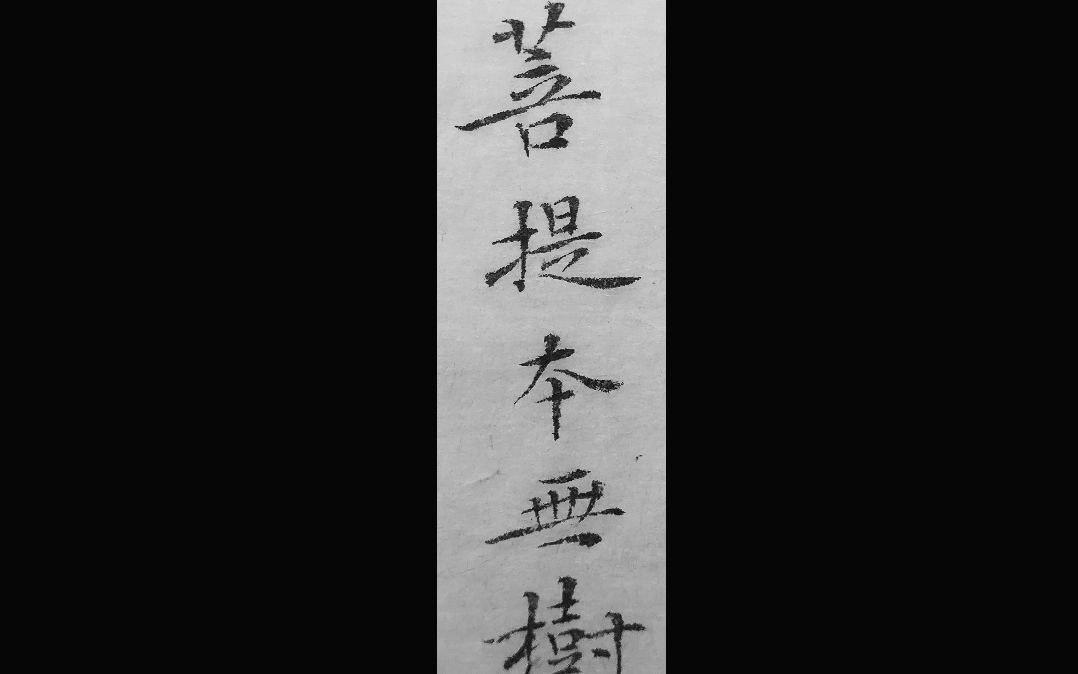 菩提本無樹